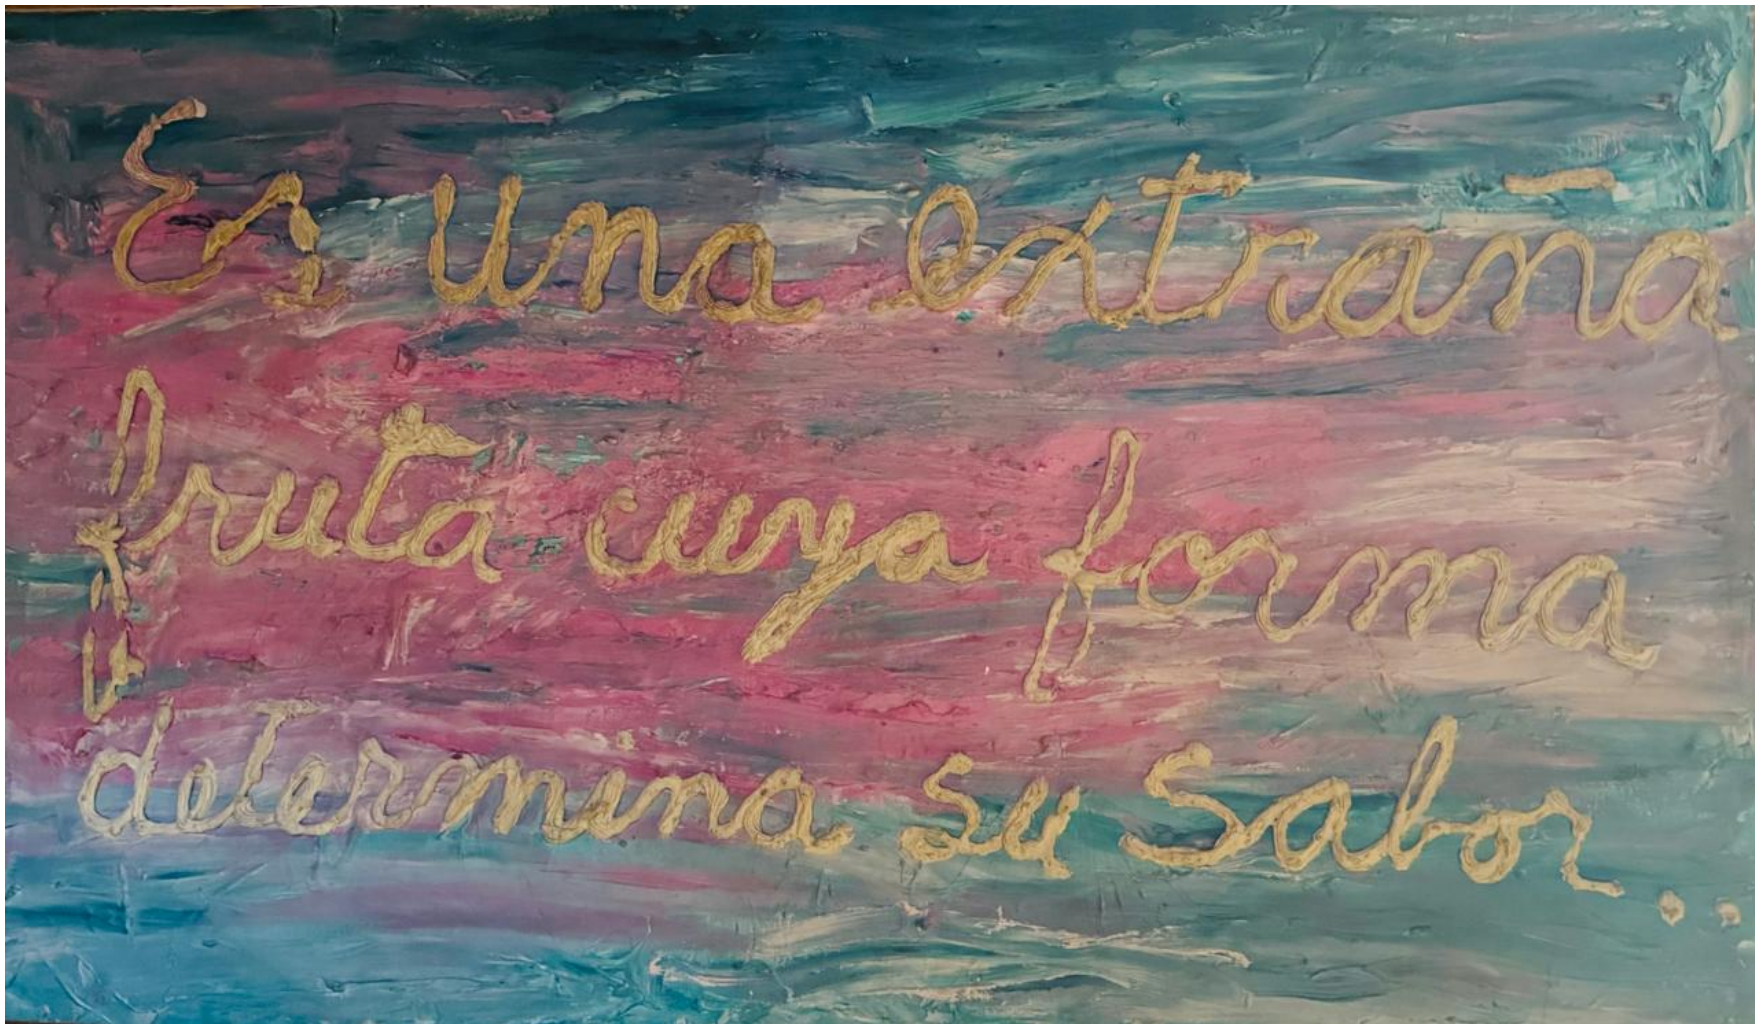 Es una extraña
fruta cuya forma
determina su Sabor..